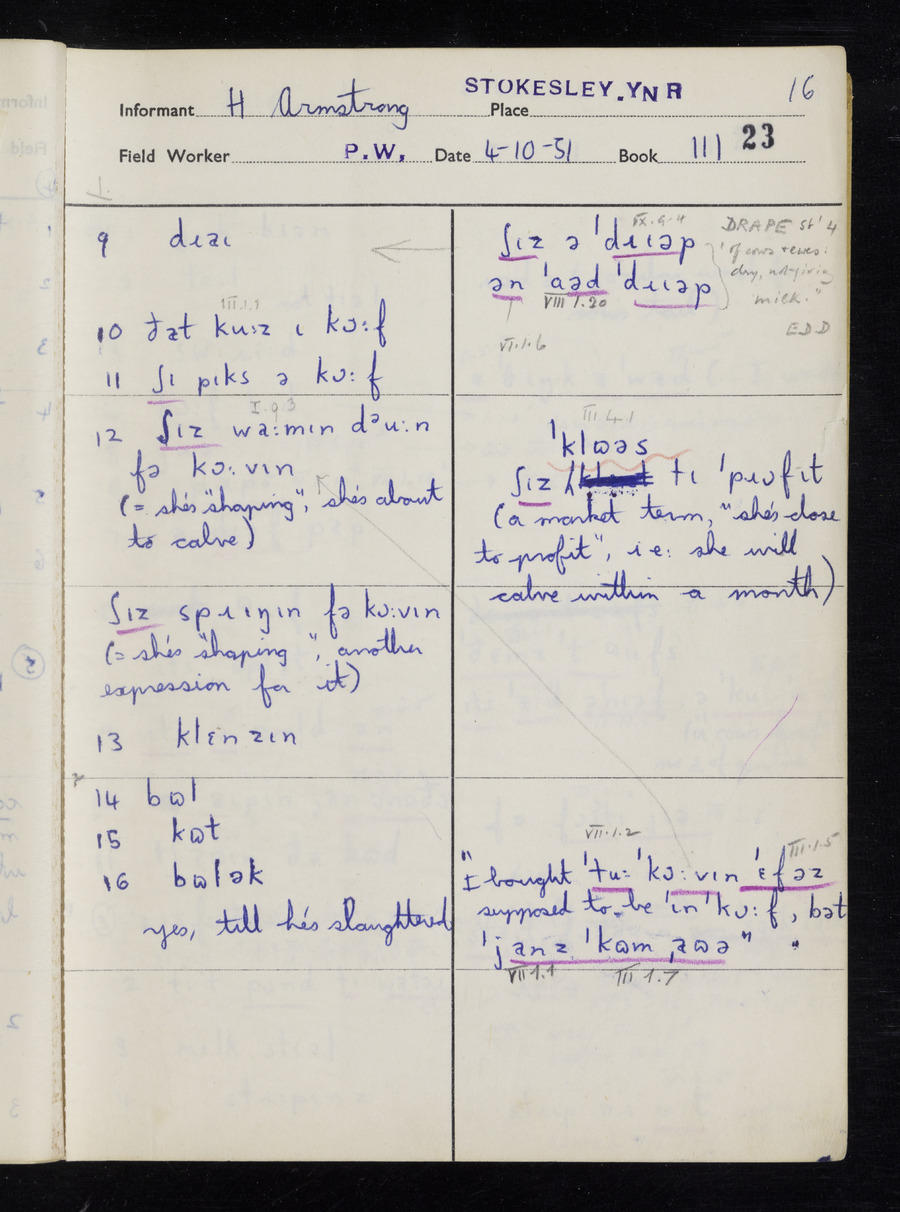 STOKESLEY.YNR 16
Informant H Armstrong Place
Field Worker P.W. Date 4-10-51 Book III 23
9 dɹaɪ
III.1.1
10 ðat kuːz ɪ kɔːf
11 ʃɪ pɪks ə kɔːf
I.9.3
12 ʃɪz waːmɪn dᵊuːn
fə kɔːvɪn
(= she's "shaping", she's about
to calve)
ʃɪz spɹɪŋɪn fə kɔːvɪn
(= she's "shaping", another
expression for it)
13 klɛnzɪn
14 bʊl
15 kʊt
16 bʊlək
yes, till he's slaughtered
IX.9.4
ʃɪz ə ˈdɹɪəp
ən ˈaəd ˈdɹɪəp
VIII 1.20
VI.1.6
DRAPE sb' 4
'of cows + ewes:
dry, not giving
milk."
EDD
III.4.1
ˈklʊəs
ʃɪz tɪ ˈpɹɔfɪt
(a market term, "she's close
to profit", ie: she will
calve within a month)
VII.1.2
III.1.5
"I bought ˈtuː ˈkɔːvɪn ˈɛfəz
supposed to be ˈin ˈkɔːf, bət
ˈjanz ˈkʊm aʊə"
VII 1.1 III 1.7